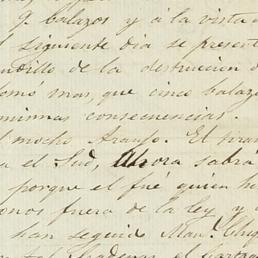 9. balazos y á la vista d
l siguiente dia se present
ndillo de la destruccion d
omo mas, que cinco balazo
mismas consecuencias.
l mocho Araujo. El
a el Sud, Ahora sabrá
porque el fué quien h
onos fuera de la ley, y
han seguido Man.l